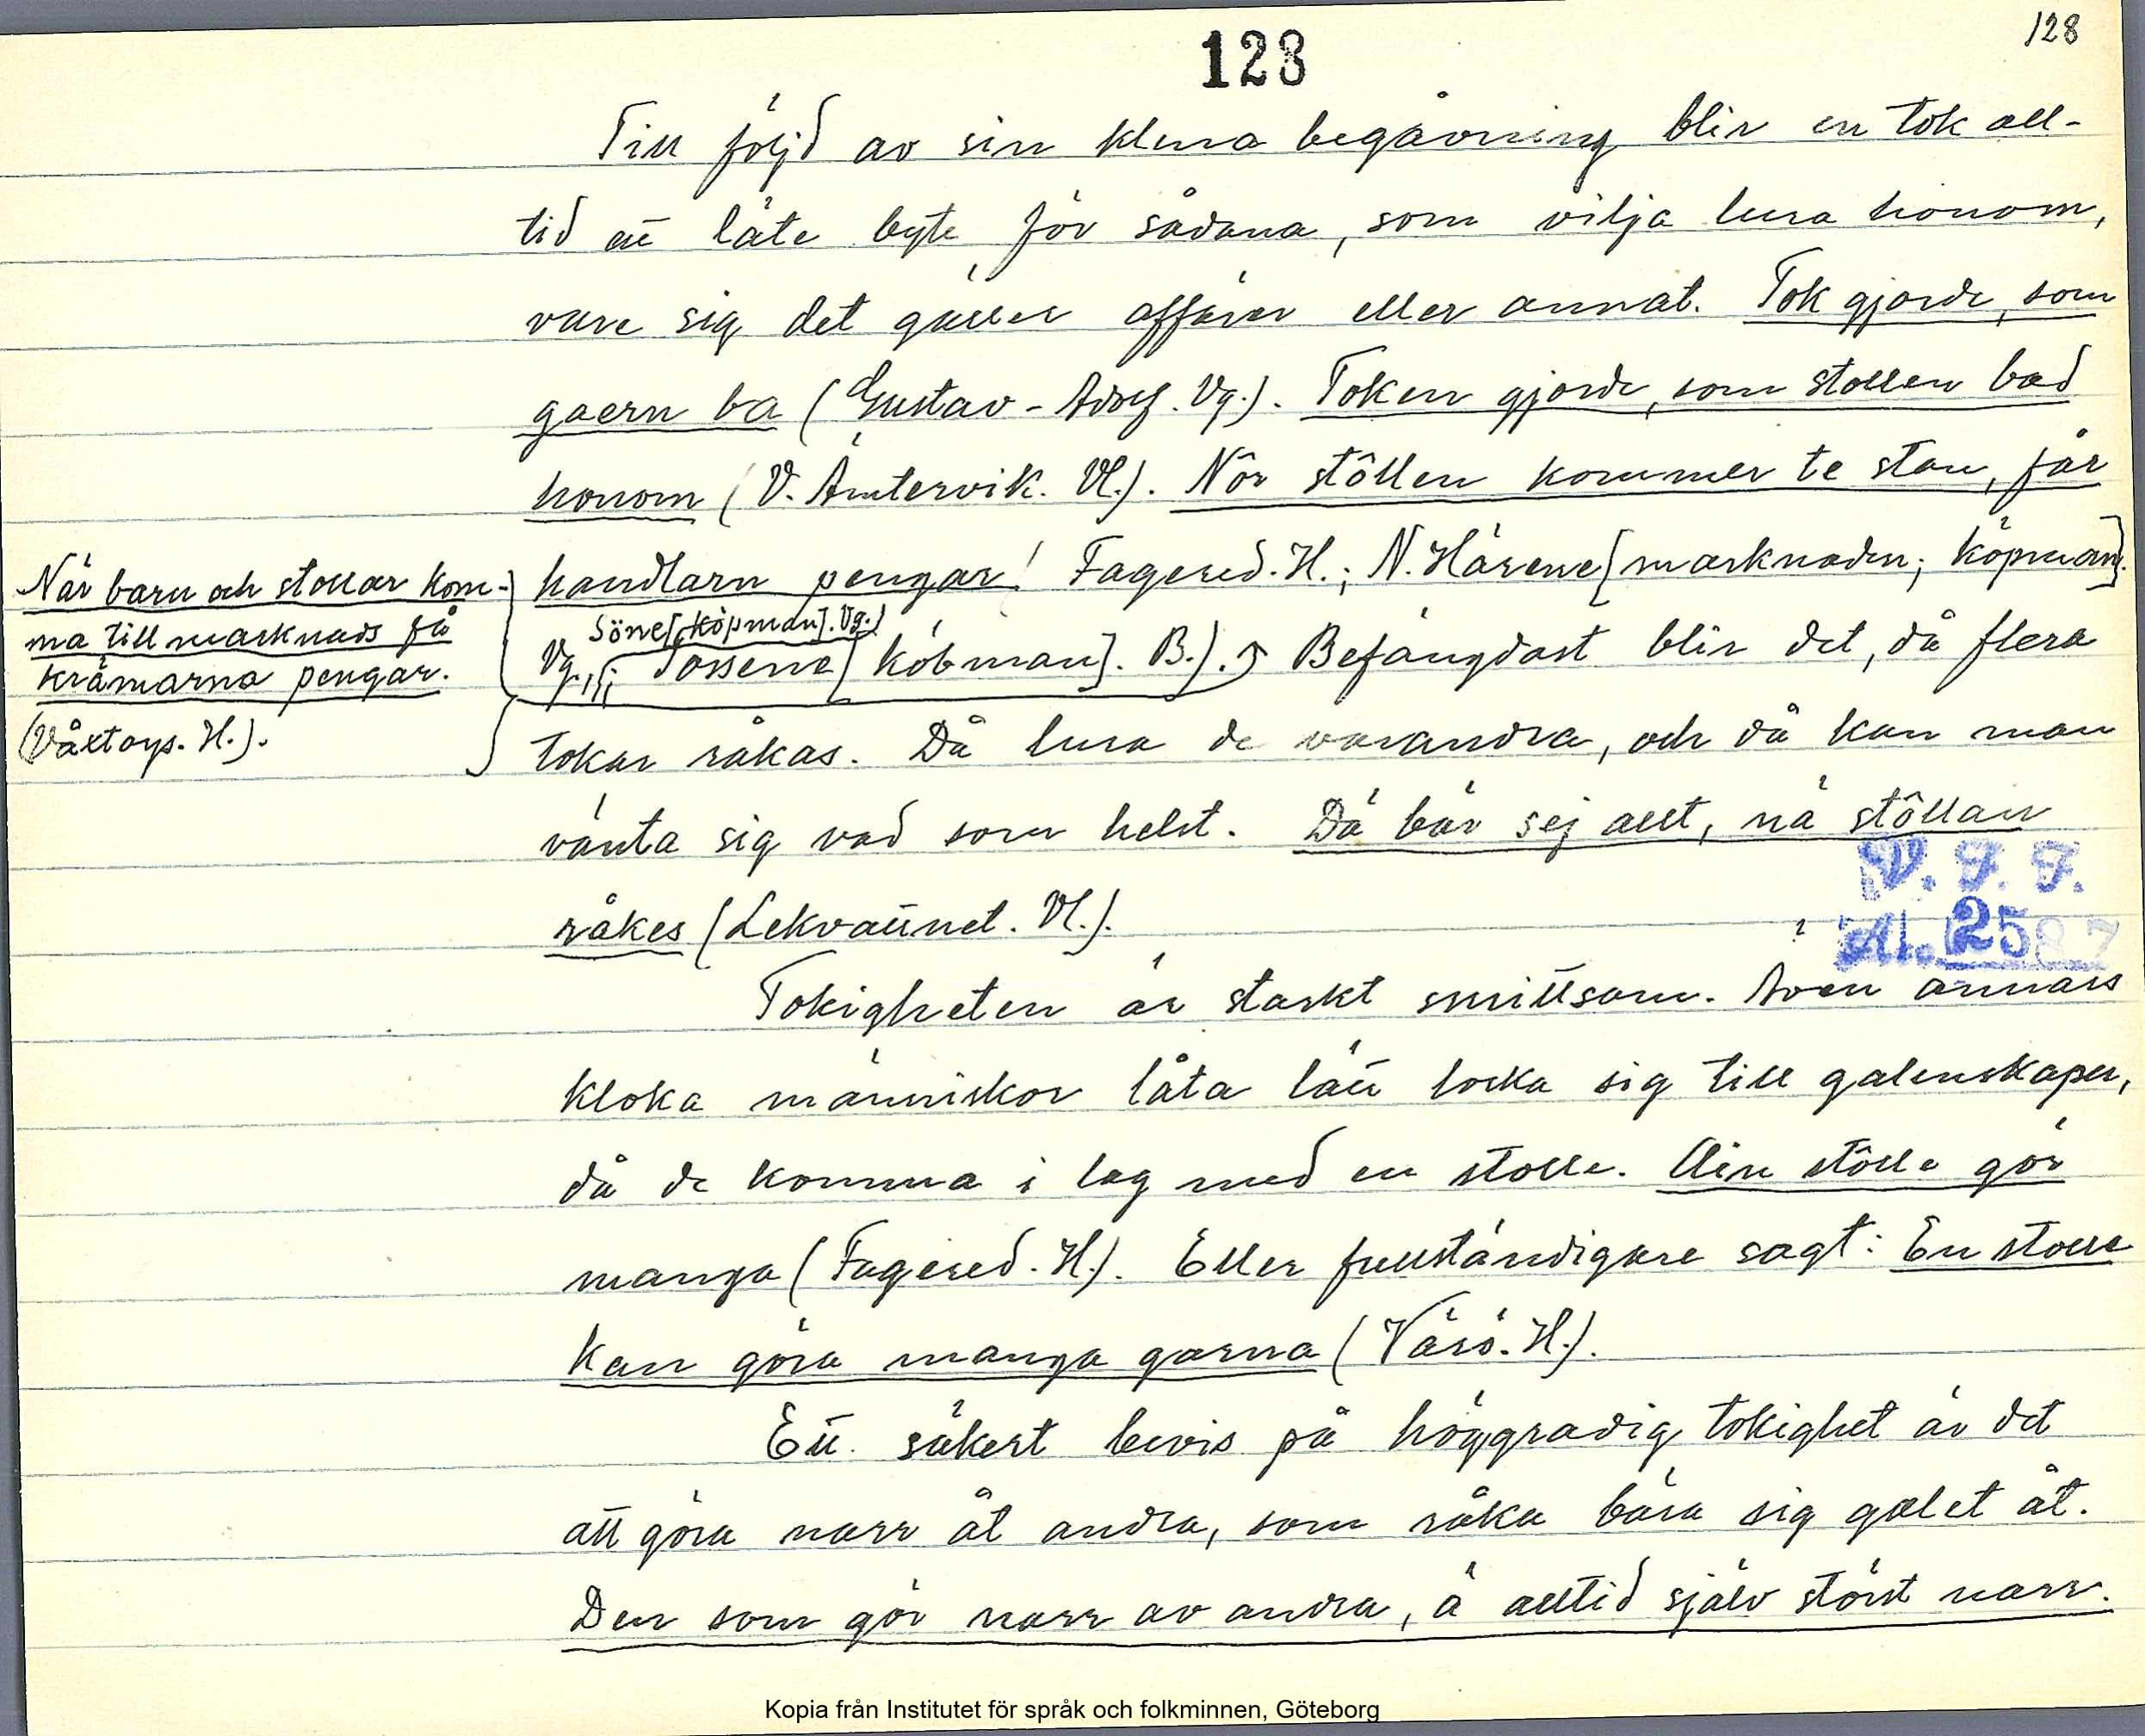 128
128
Till följd av sin klena begåvning blir en tok all-
tid ett lätt byte för sådana, som vilja lura honom,
vare sig det gäller affärer eller annat. Tok gjorde, som
gaern ba (Gustav-Adolf. Vg.). Token gjorde, som stollen bad
honom (V. Ämtervik. Vl.). När stôllen kommer te stan, får
handlarn pengar! Fagered. H.; N. Härene [marknaden; köpman].
Söne [köpman]. Vg.)
Vg.; Tossene [köbman]. B.). Befängdast blir det, då flera
När barn och stollar kom-
ma till marknads få
krämarna pengar.
(Våxtorps. H.).
tokar råkas. Då lura de varandra, och då kan man
vänta sig vad som helst. Dä bär sej allt, nä stôllan
råkes (Lekvattnet. Vl.).
V. F. F.
Al. 2587
Tokigheten är starkt smittsam. Även annars
kloka människor låta lätt locka sig till galenskaper,
då de komma i lag med en stolle. Ain stôlle gör
manga (Fagered. H.). Eller fullständigare sagt: En stolle
kan göra manga garna (Värö. H.).
Ett säkert bevis på höggradig tokighet är det
att göra narr åt andra, som råka bära sig galet åt.
Den som gör narr av andra, ä alltid själv störst narr.
Kopia från Institutet för språk och folkminnen, Göteborg